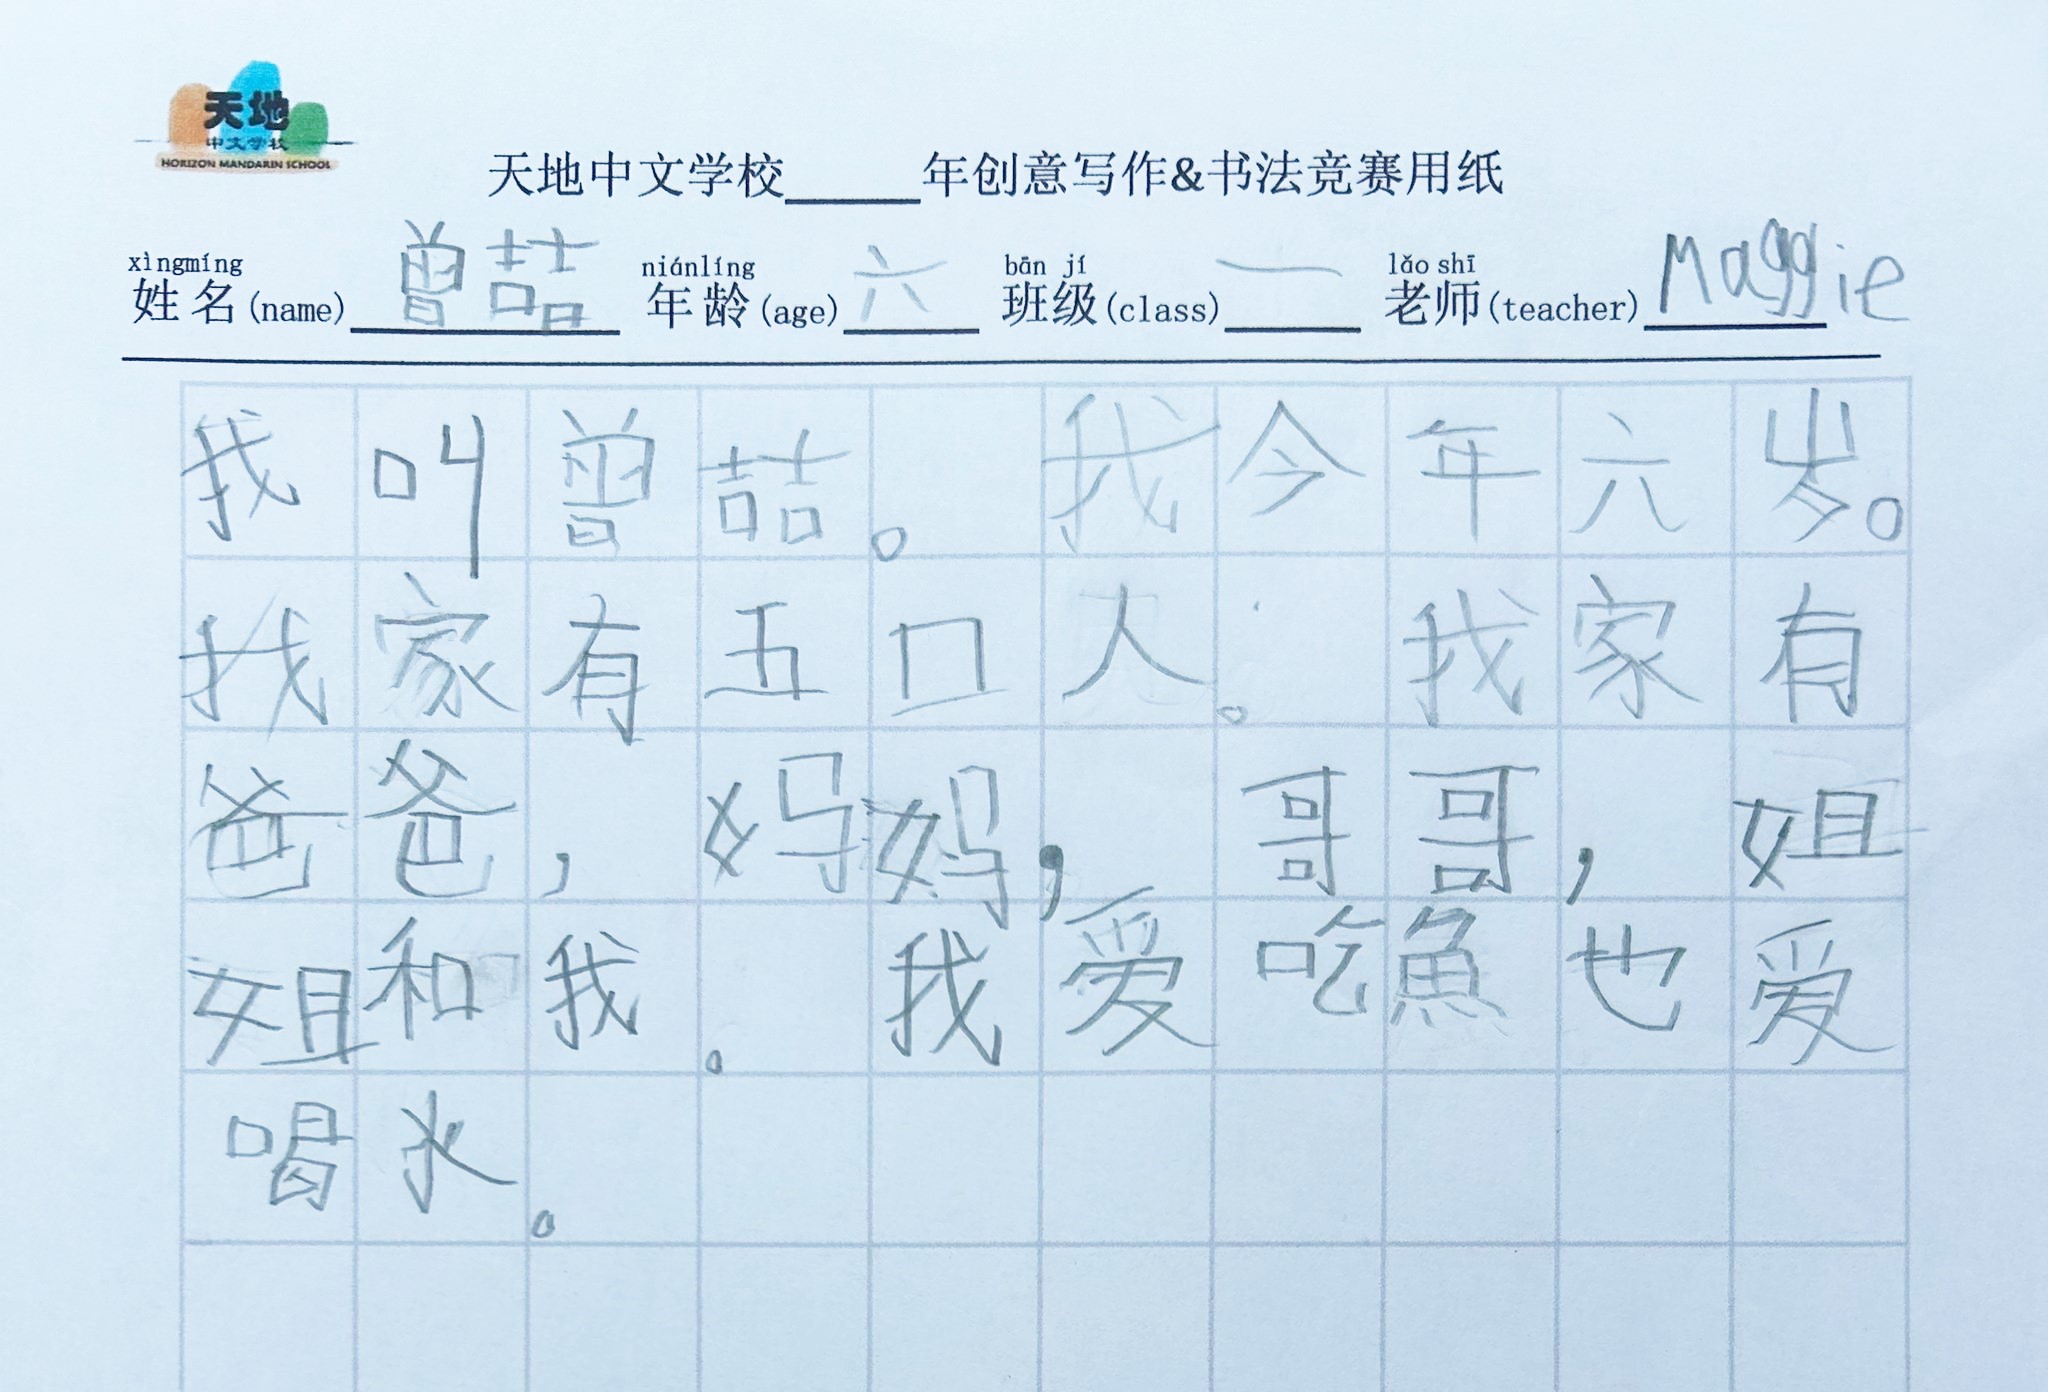 天地
中文学校
HORIZON MANDARIN SCHOOL
天地中文学校_____年创意写作&书法竞赛用纸
xìngmíng niánlíng bān jí lǎo shī
姓名(name) 曾喆 年龄(age) 六 班级(class) 一 老师(teacher) Maggie
我叫曾喆。我今年六岁。
我家有五口人。我家有
爸爸，妈妈，哥哥，姐
姐和我。我爱吃魚也爱
喝水。